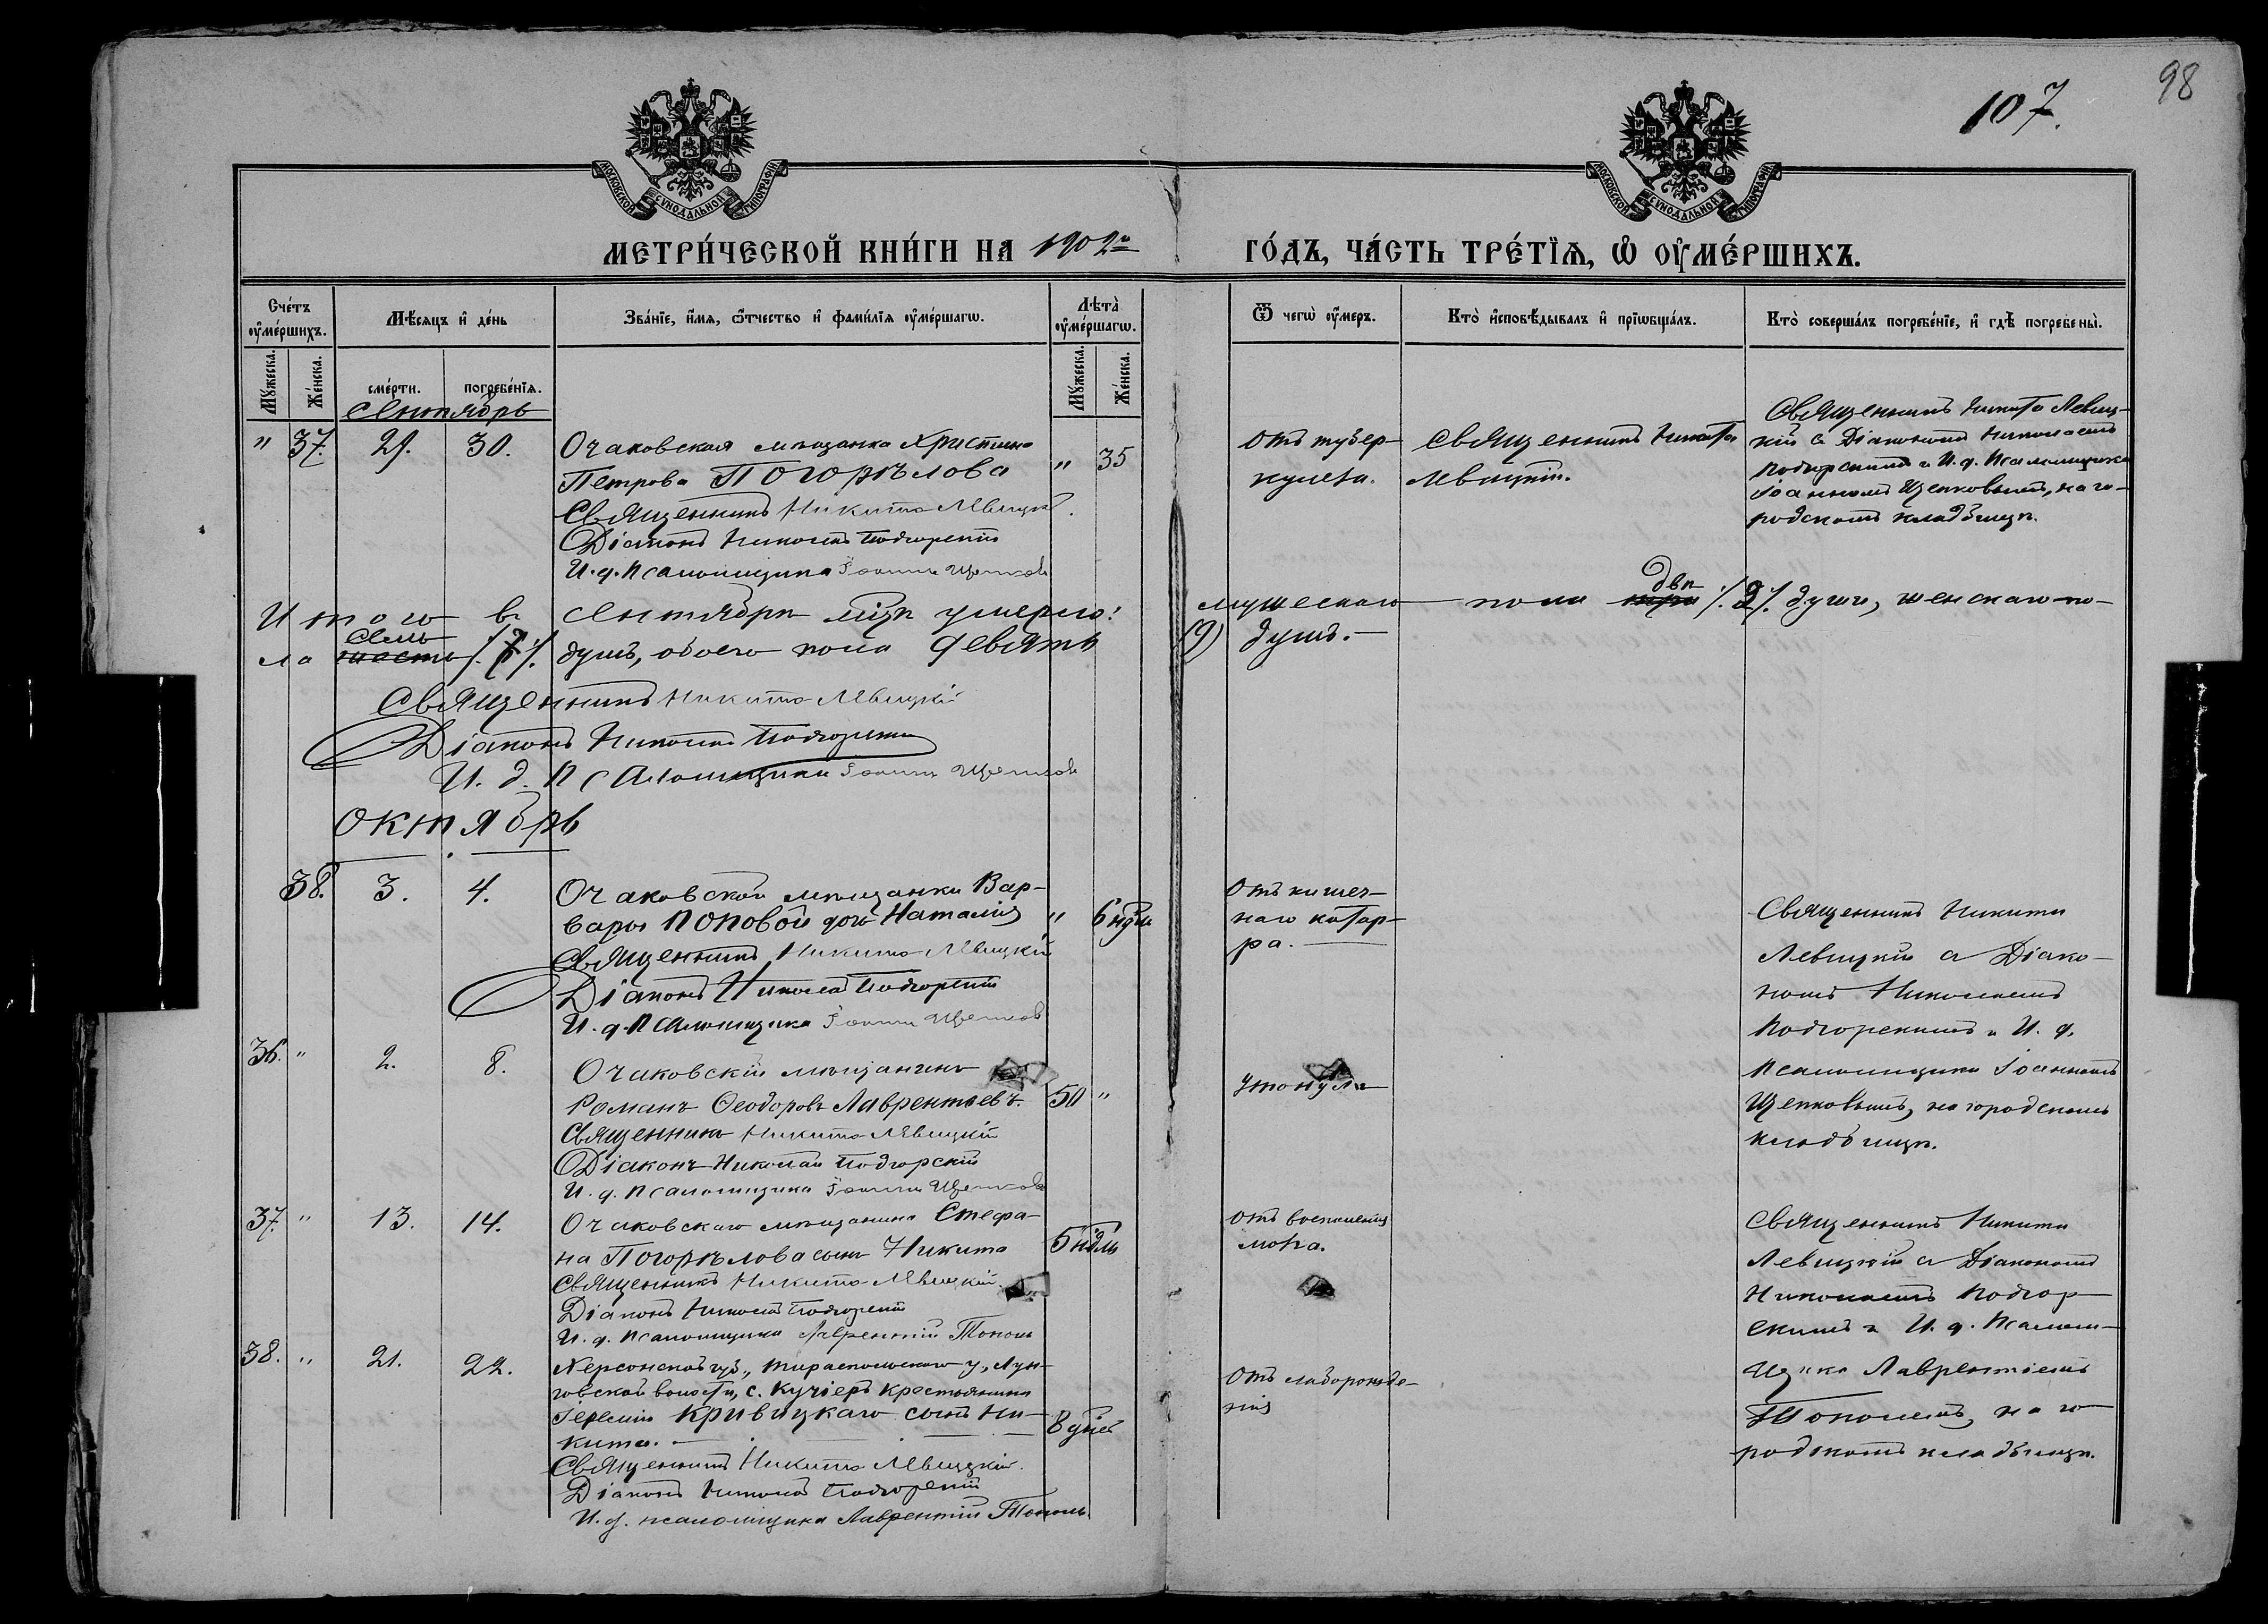 98
107.
МОСКОВСКОЙ СѴНОДАЛЬНОЙ ТИПОГРАФІИ
МОСКОВСКОЙ СѴНОДАЛЬНОЙ ТИПОГРАФІИ
МЕТРИ́ЧЕСКОЙ КНИ́ГИ НА 1902й ГО́ДЪ, ЧА́СТЬ ТРЕ́ТЇѦ, Ѡ ОУМЕ́РШИХЪ.
Сче́тъ оумéршихъ.
Мѣ́сяцъ и де́нь
Зва́нїе, и́мѧ, ѻ́тчество и фами́лїѧ оумéршагѡ.
Лѣта̀ оумéршагѡ.
Ѿ чегѡ̀ оу́меръ.
Кто̀ исповѣ́дывалъ и прїѡбща́лъ.
Кто̀ соверша́лъ погребе́нїе, и гдѣ̀ погребены̀.
Мꙋ́жеска.
Же́нска.
сме́рти.
погребе́нїѧ.
Мꙋ́жеска.
Же́нска.
Сентябрь
" 37. 29. 30. Очаковская мѣщанка Христина
Петрова Погорѣлова " 35
Священникъ Никита Левицкій.
Діаконъ Николай Подгорскій
И. д. Псаломщика Іоаннъ Щепковъ
Отъ тубер-
кулеза.
Священникъ Никита
Левицкій.
Священникъ Никита Левиц-
кій съ Діакономъ Николаемъ
Подгорскимъ и И. д. Псаломщика
Іоанномъ Щепковымъ, на го-
родскомъ кладбищѣ.
Итого въ Сентябрѣ мцѣ умерло: мужескаго пола три двѣ /.2/. души, женскаго по-
ла шесть семь /.7/. душъ, обоего пола девять (9) душъ.
Священникъ Никита Левицкій
Діаконъ Николай Подгорскій
И. д. Псаломщика Іоаннъ Щепковъ
Октябрь
38. 3. 4. Очаковской мѣщанки Вар-
вары Поповой дочь Наталія " 6 ндль
Священникъ Никита Левицкій
Діаконъ Николай Подгорскій
И. д. Псаломщика Іоаннъ Щепковъ
Отъ кишеч-
наго катар-
ра.
Священникъ Никита
Левицкій съ Діако-
номъ Николаемъ
Подгорскимъ и И. д.
Псаломщика Іоанномъ
Щепковымъ, на городскомъ
кладбищѣ.
36. " 2. 8. Очаковскій мѣщанинъ
Романъ Ѳеодоровъ Лаврентьевъ. 50 "
Священникъ Никита Левицкій
Діаконъ Николай Подгорскій
И. д. Псаломщика Іоаннъ Щепковъ
Утонулъ
37. " 13. 14. Очаковскаго мѣщанина Стефа-
на Погорѣлова сынъ Никита 5 ндль
Священникъ Никита Левицкій.
Діаконъ Николай Подгорскій
И. д. Псаломщика Лаврентій Тополь
Отъ воспаленія
мозга.
Священникъ Никита
Левицкій съ Діакономъ
Николаемъ Подгор-
скимъ и И. д. Псалом-
щика Лаврентіемъ
Тополемъ, на го-
родскомъ кладбищѣ.
38. " 21. 22. Херсонской губ., Тираспольскаго у,
волости, с. крестьянина
Іереміи Кривицкаго сынъ Ни-
кита. 8 дней
Священникъ Никита Левицкій.
Діаконъ Николай Подгорскій
И. д. псаломщика Лаврентій Тополь.
Отъ слаборожде-
нія